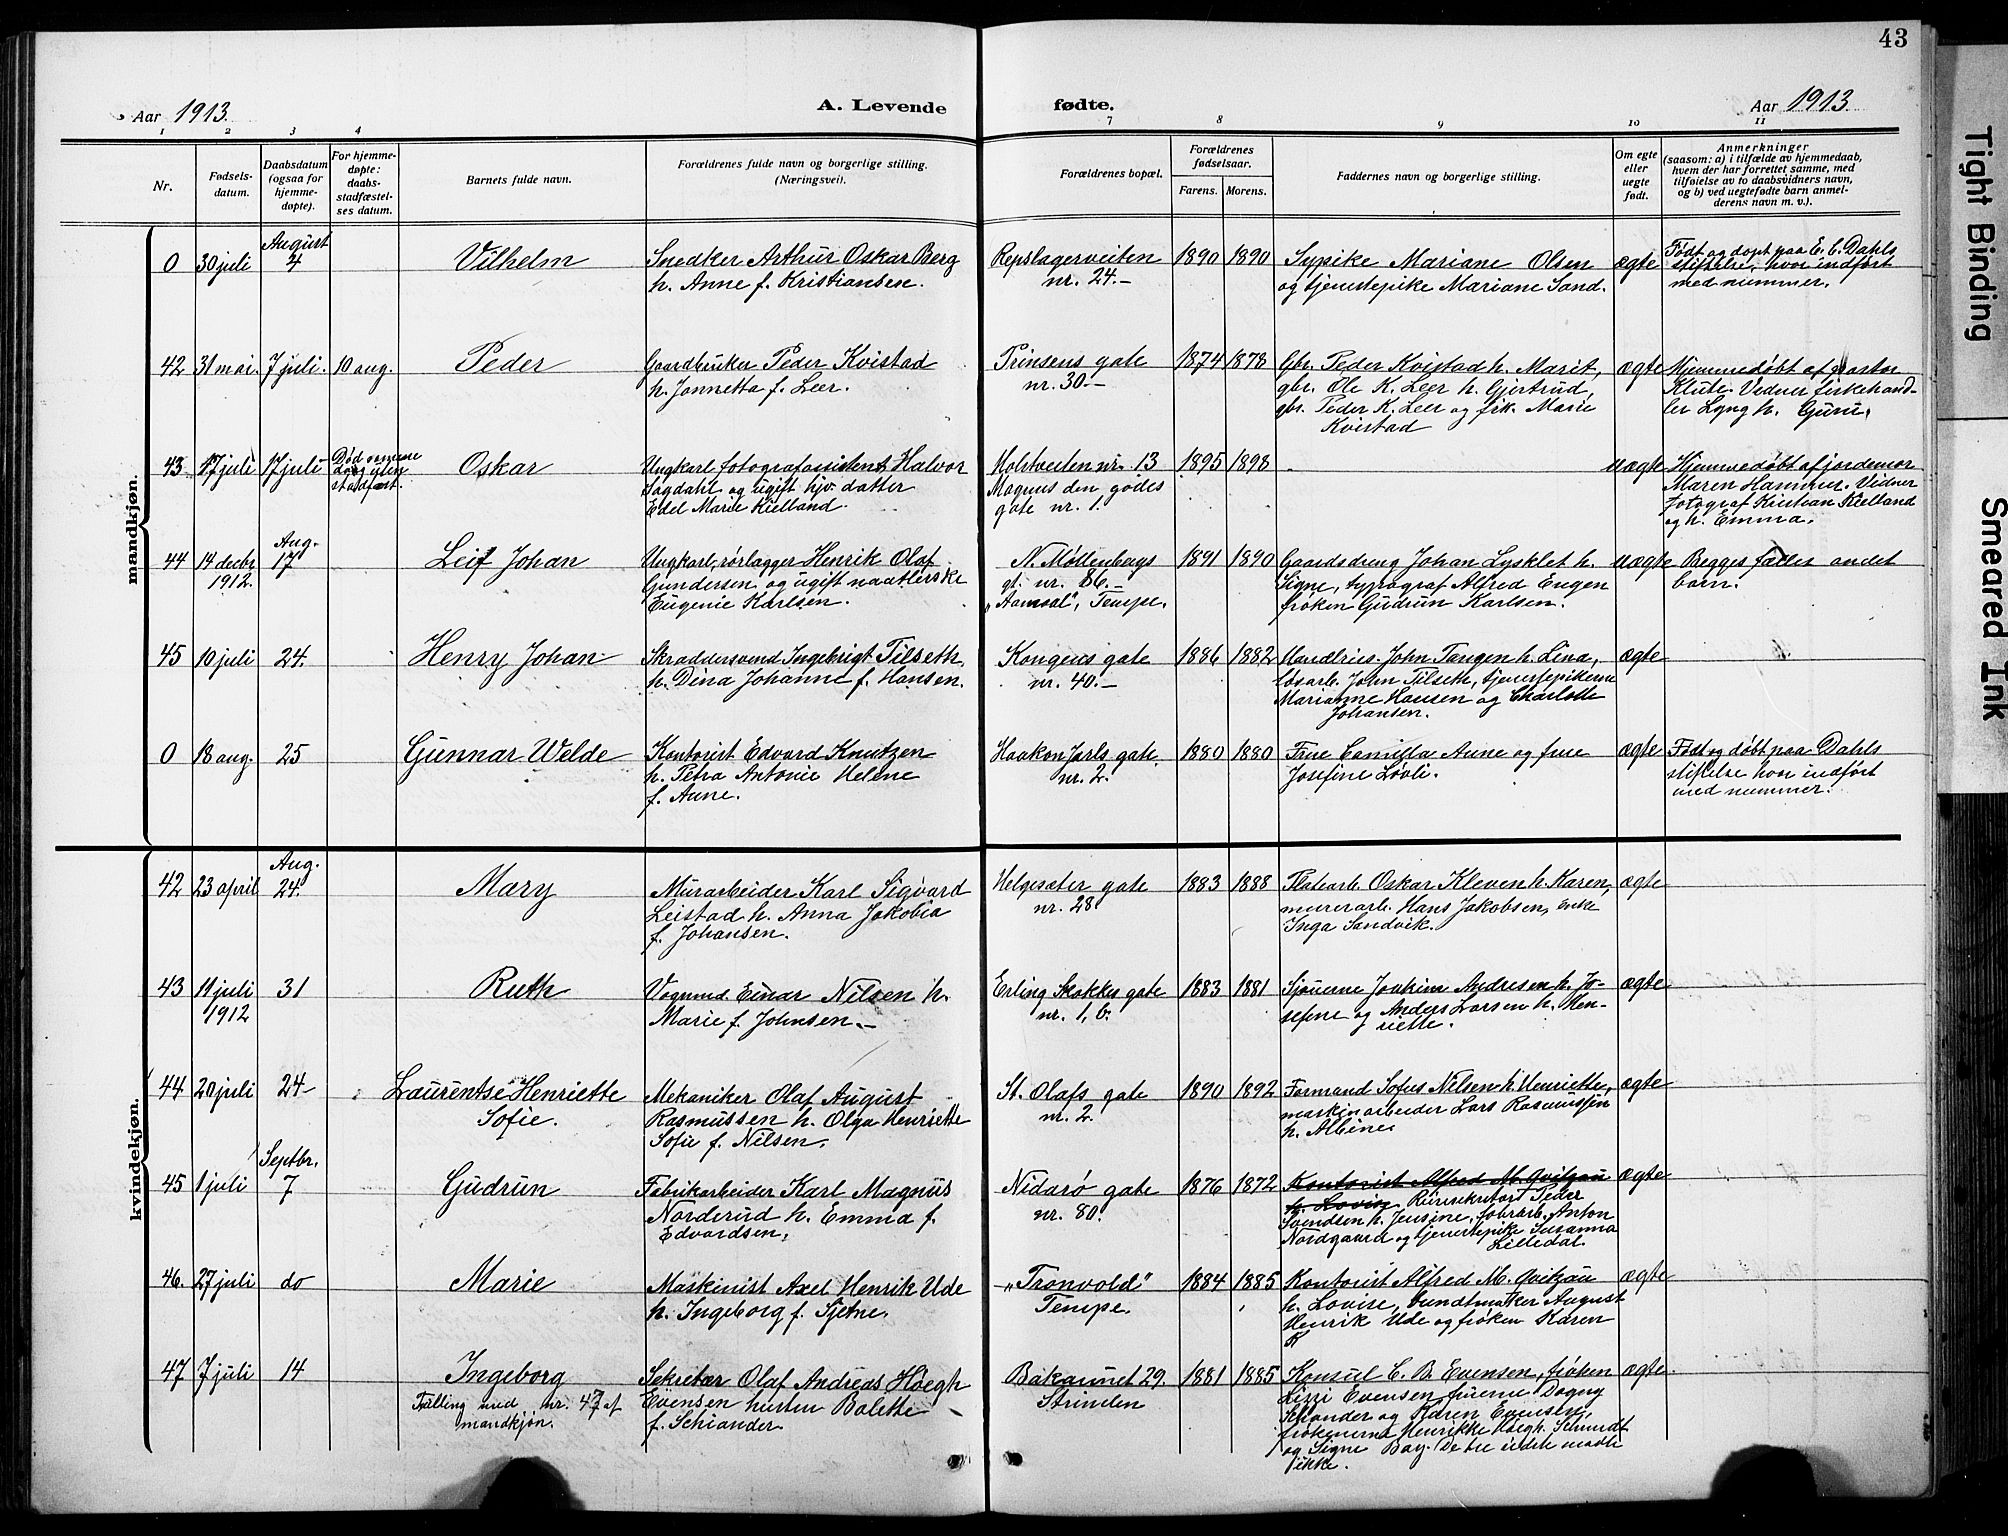 43
Aar 1913.
A. Levende
fødte.
Aar 1913.
1 2 3 4 7 8 9 10 11
Nr.
Fødsels-
datum.
Daabsdatum
(ogsaa for
hjemme-
døpte).
For hjemme-
døpte:
daabs-
stadfæstel-
ses datum.
Barnets fulde navn.
Forældrenes fulde navn og borgerlige stilling.
(Næringsvei).
Forældrenes bopæl.
Forældrenes
fødselsaar.
Farens. Morens.
Faddernes navn og borgerlige stilling.
Om egte
eller
uegte
født.
Anmerkninger
(saasom: a) i tilfælde av hjemmedaab,
hvem der har forrettet samme, med
tilføielse av to daabsvidners navn,
og b) ved uegtefødte barn anmel-
derens navn m. v.).
mandkjøn.
0 30 juli August 4 Vilhelm
Snedker Arthur Oskar Berg
h. Anne f. Kristiansen.
Repslagerveiten
nr. 24.-
1890 1890
Sypike Mariane Olsen
og tjenestepike Mariane Sand.
ægte
Født og døpt paa E. C. Dahls
stiftelse, hvor indført
med nummer.
42 31 mai. 7 juli. 10 aug. Peder
Gaardbruker Peder Kvistad
h. Jonnetta f. Leer.
Prinsens gate
nr. 30.-
1874 1878
Gbr. Peder Kvistad h. Marit,
gbr. Ole K. Leer h. Gjertrud,
gbr. Peder K. Leer og frk. Marie
Kvistad
ægte
Hjemmedøbt af pastor
Klüte. Vidner fiskehand-
ler Lyng h. Guru.
43 17 juli 17 juli
Død samme
dag uten
stadfæst.
Oskar
Ungkarl fotografassistent Halvor
Sagdahl og ugift hjv. datter
Edel Marie Kielland.
Holstveiten nr. 13
Magnus den godes
gate nr. 1.
1895 1898
uægte
Hjemmedøbt af jordemor
Maren Hammer. Vidner
fotograf Kristian Kielland
og h. Emma.
44 14 decbr. 1912. Aug. 17 Leif Johan
Ungkarl, rørlægger Henrik Olaf
Gundersen og ugift naatlerske
Eugenie Karlsen.
N. Møllenbergs
gt. nr. 86.-
"Aamoal", Tempe.
1891 1890
Gaardsdreng Johan Lysklet h.
Signe, typograf Alfred Engen
frøken Gudrun Karlsen.
uægte
Begges fælles andet
barn.
45 10 juli 24. Henry Johan
Skræddersvend Ingebrigt Tilseth
h. Dina Johanne f. Hansen.
Kongens gate
nr. 40.-
1886 1882
Handlreis. John Tangen h. Lina,
løsarb. John Tilseth, tjenestepikerne
Marianne Hansen og Charlotte
Johansen.
ægte
0 18 aug. 25 Gunnar Welde
Kontorist Edvard Knutzen
h. Petra Antonie Helene
f. Aune.
Haakon Jarls gate
nr. 2.
1880 1880
Frue Camilla Aune og frue
Josefine Løvli.
ægte
Født og døbt paa Dahls
stiftelse hvor indført
med nummer.
kvindekjøn.
42 23 april Aug. 24. Mary
Murarbeider Karl Sigvard
Leistad h. Anna Jakobia
f. Johansen.
Helgesæter gate
nr. 28
1883 1888
Platearb. Oskar Kleven h. Karen,
murerarb. Hans Jakobsen, enke
Inga Sandvik.
ægte
43 11 juli 1912 31 Ruth
Vognmd. Einar Nilsen h.
Marie f. Johnsen.-
Erling Skakkes gate
nr. 1, b.
1883 1881
Sjouerne Joakim Andresen h. Jo-
sefine og Anders Larsen h. Hen-
riette.
ægte
44 20 juli 24 Laurentse Henriette
Sofie.
Mekaniker Olaf August
Rasmussen h. Olga Henriette
Sofie f. Nilsen.
St. Olafs gate
nr. 2.
1890 1892
Formand Sofus Nilsen h. Henriette,
maskinarbeider Lars Rasmussen
h. Albine.
ægte
45 1 juli Septbr. 7 Gudrun
Fabrikarbeider Karl Magnus
Norderud h. Emma f.
Edvardsen.
Nidarø gate
nr. 80.
1876 1872
Kontorist Alfred M. Qvitzau
h. Lovise, Riinsekretær Peder
Svendsen h. Jensine, fabrarb. Anton
Nordgaard og tjenestepike Susanna
Lilledal.
ægte
46. 27 juli do Marie
Maskinist Axel Henrik Ude
h. Ingeborg f. Tjetne.
"Tronvold"
Tempe.
1884 1885
Kontorist Alfred M. Qvitzau
h. Lovise, bundtmaker August
Henrik Ude og frøken Karen
K
ægte
47 7 juli 14 Ingeborg
Tvilling med nr. 47 af
mandkjøn.
Sekretær Olaf Andreas Høegh
Evensen hustru Bolette
f. Schiander.
Bakaunet 29.
Strinden
1881 1885
Konsul C. B. Evensen, frøken
Lizzi Evensen, fruerne Dagny
Schiander og Karen Evensen,
frøknerne Henrikke Høegh Schmidt
og Signe Bay. De tre sidste mødte
ikke.
ægte
Tight Binding
Smeared Ink